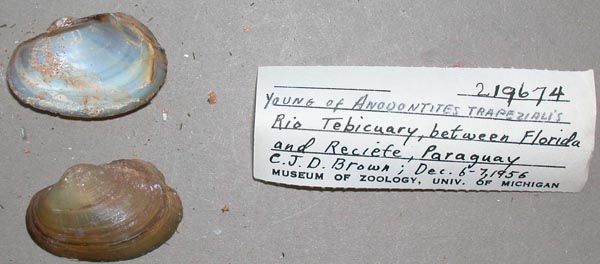 219674
YOUNG OF ANODONTITES TRAPEZIALIS
Rio Tebicuary, between Florida
and Reciete, Paraguay
C.J.D. Brown; Dec. 6-7, 1956
MUSEUM OF ZOOLOGY, UNIV. OF MICHIGAN